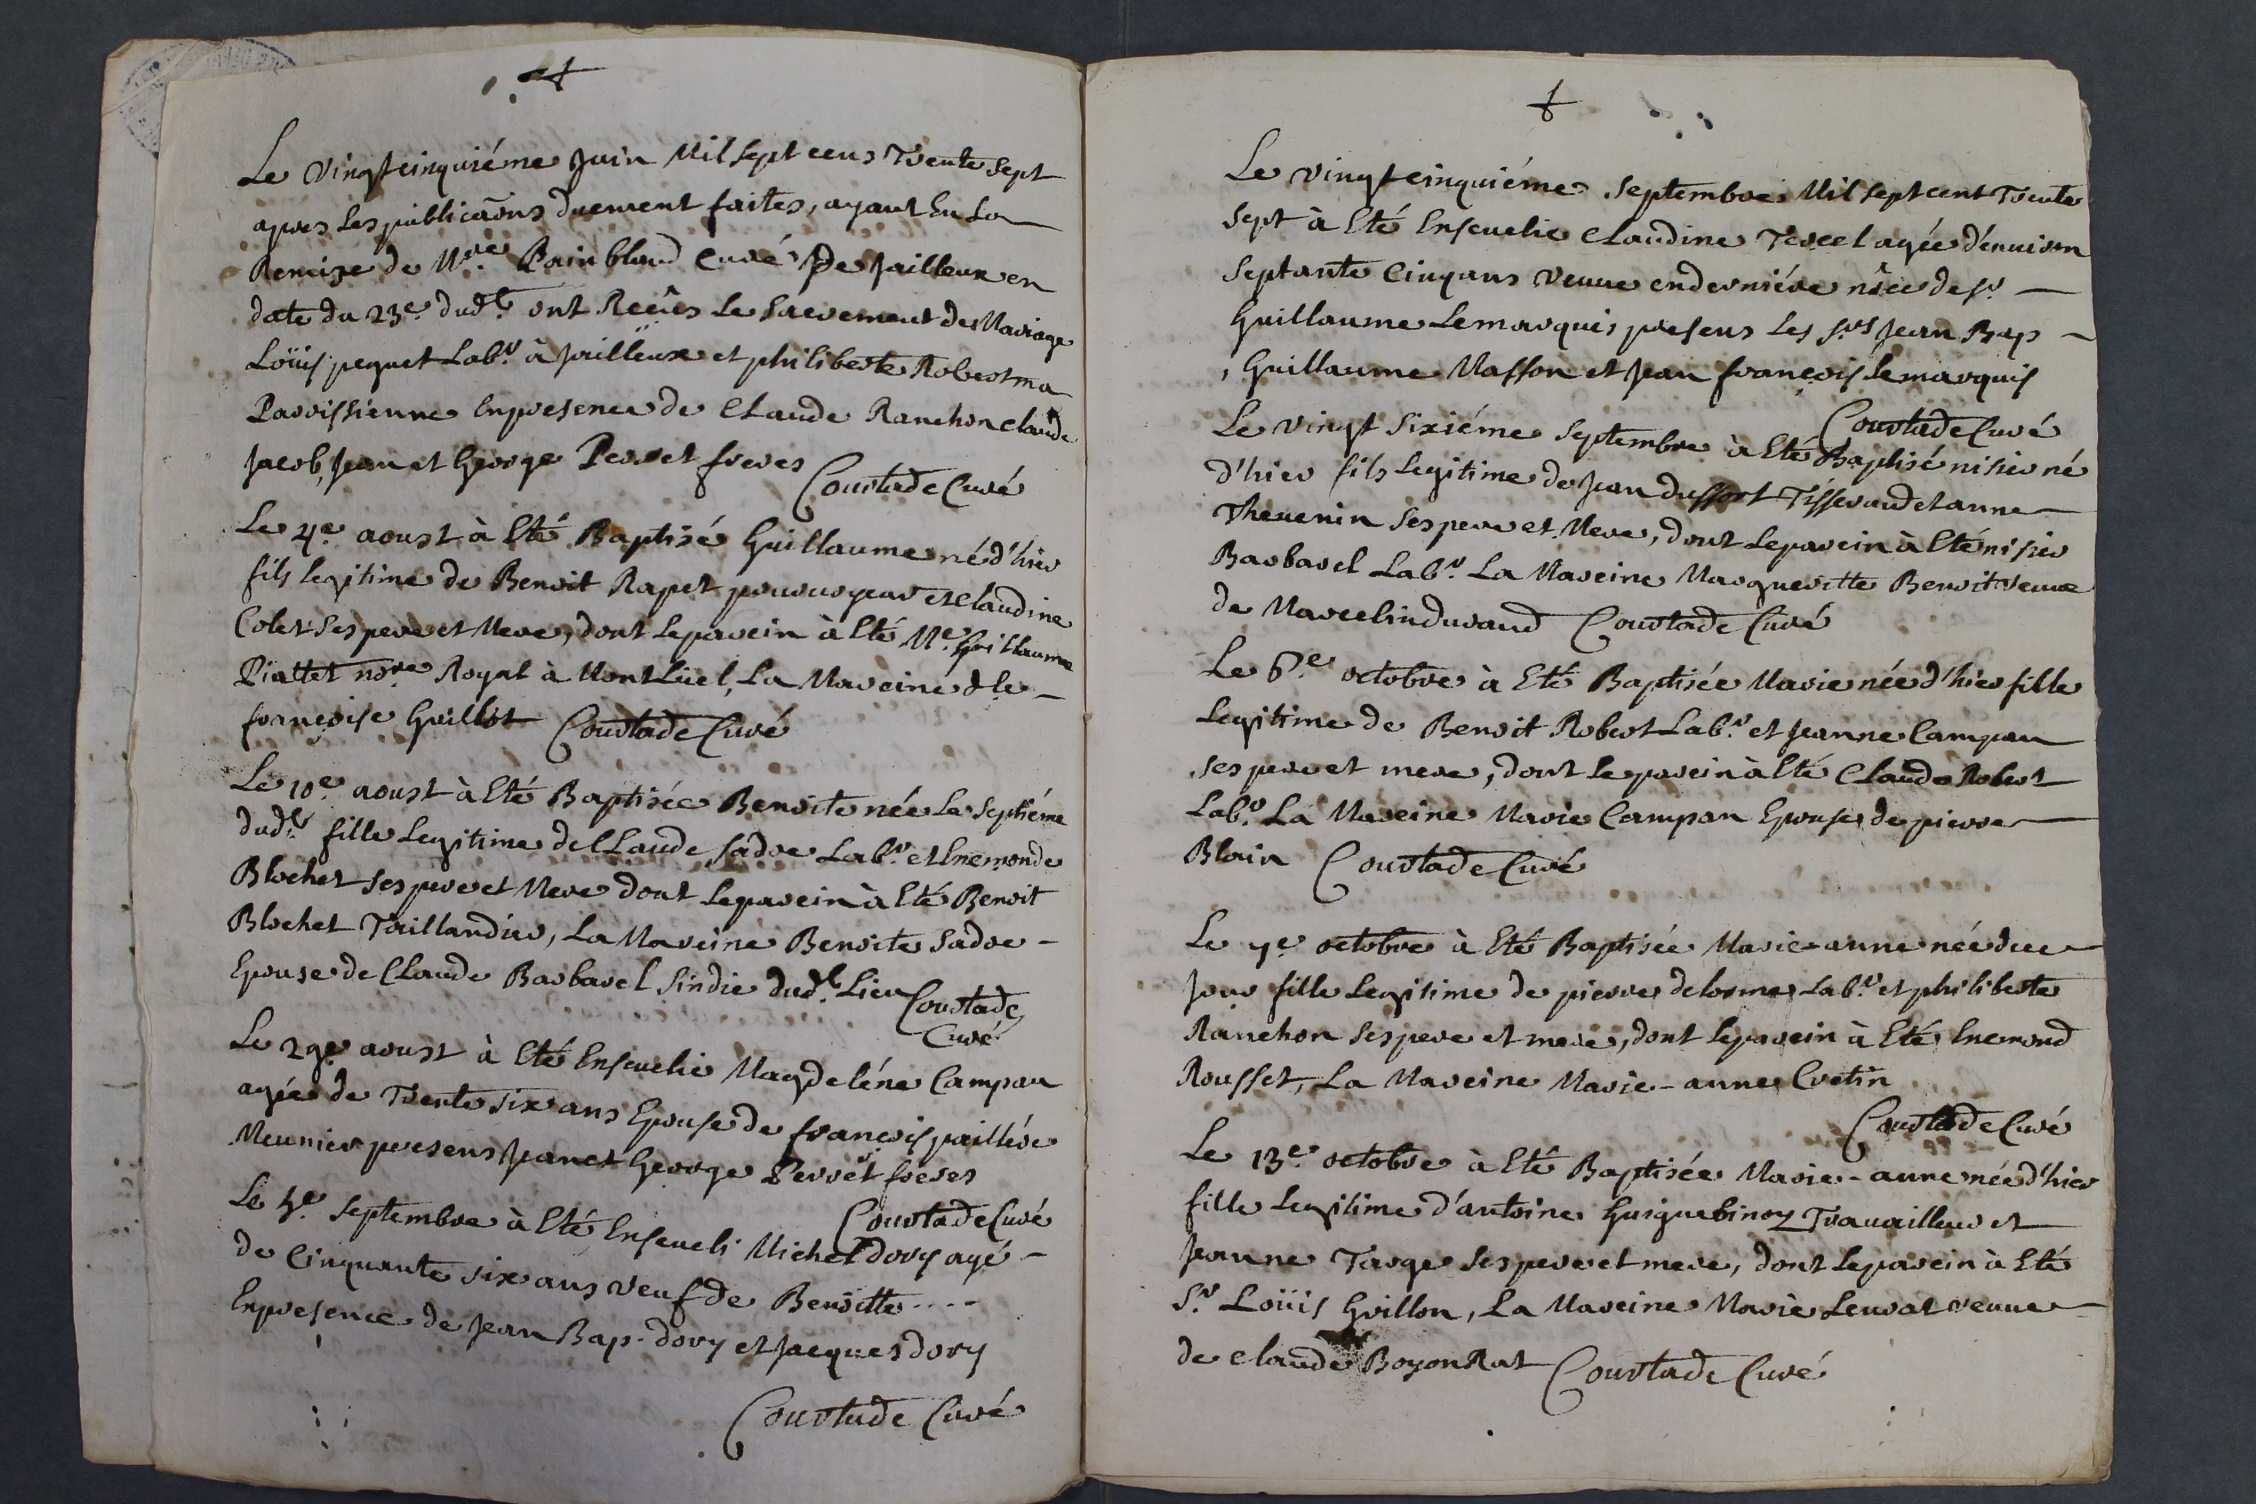 Le vingt cinquiéme Juin Mil sept cens Trente sept
apres les publicãons duement faites, ayant Eu La
Remize de Mre. Painblanc Curé De Jailleux en
date du 23e. dudt. ont Reçûs Le Sacrement de Mariage
Loüis pequet Labr. à Jailleux et philiberte Robert ma
Parroissienne En presence de Claude Ranchon claude
Jacob, Jean et George Perret freres
Courtade Curé
Le 4e. aoust à Eté Baptisé Guillaume né d'hier
fils legitime de Benoit Rapet pourvoyeur et Claudine
Colet ses pere et Mere, dont le parein à Eté Me. Guillaume
Piattet nore Royal à Montlüel, La Mareine dle
françoise Guillot Courtade Curé
Le 10e. aoust à Eté Baptisée Benoite née Le septiéme
dudt. fille Legitime de Claude Sadre Labr. et Enemonde
Blochet ses pere et Mere dont Le parein à Eté Benoit
Blochet Taillandier, La Mareine Benoite Sadre
Epouse de Claude Barbarel Sindic dudt. Lieu Courtade
Curé
Le 29e aoust à Eté Ensevelie Magdeléne Campan
agée de Trente six ans Epouse de françois paillére
Meunier presens Jean et George Perret freres
Courtade Curé
Le 5e. Septembre à Eté Enseveli Michel dory agé
de Cinquante six ans veuf de Benoitte . . . .
En presence de Jean Bap. dory et Jacques dory
Courtade Curé
Le vingt cinquiéme Septembre Mil sept cent Trente
sept à Eté Ensevelie Claudine Tercel agée d'environ
Septante Cinq ans veuve en derniére nôce de sr.
Guillaume Lemarquis presens Les Srs Jean Bap
Guillaume Masson et Jean françois Lemarquis
Courtade Curé
Le vingt sixiéme Septembre à Eté Baptisé nisier né
d'hier fils Legitime de Jean dussort Tisserand et anne
Thevenin ses pere et Mere, dont Le parein à Eté nisier
Barbarel Labr. La Mareine Marguerite Benoit veuve
de Marcelin durand Courtade Curé
Le 6e. octobre à Eté Baptisée Marie née d'hier fille
Legitime de Benoit Robert Labr. et Jeanne Campan
ses pere et mere, dont Le parein à Eté Claude Robert
Labr. La Mareine Marie Campan Epouse de pierre
Blain Courtade Curé
Le 7e. octobre à Eté Baptisée Marie-anne née du ce
Jour fille Legitime de pierre delorme Labr. et philiberte
Ranchon ses pere et mere, dont Le parein à Eté Enemond
Rousset, La Mareine Marie-anne Cretin
Courtade Curé
Le 13e. octobre à Eté Baptisée Marie-anne née d'hier
fille Legitime d'antoine Guiguebinoy Travailleur et
Jeanne Targe ses pere et mere, dont Le parein à Eté
Sr. Loüis Guillon, La Mareine Marie Leurat veuve
de claude Boyonrat Courtade Curé